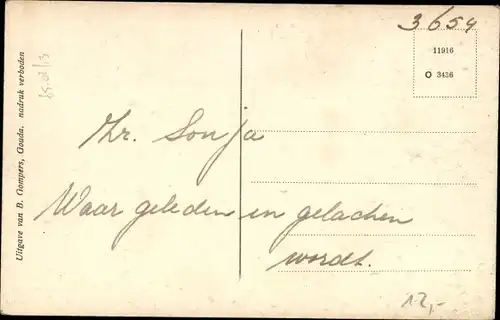 3654
11916
O 3436
Uitgave van B. Gompers, Gouda. nadruk verboden
Zr. Sonja
Waar geleden en gelachen
wordt.
12,-